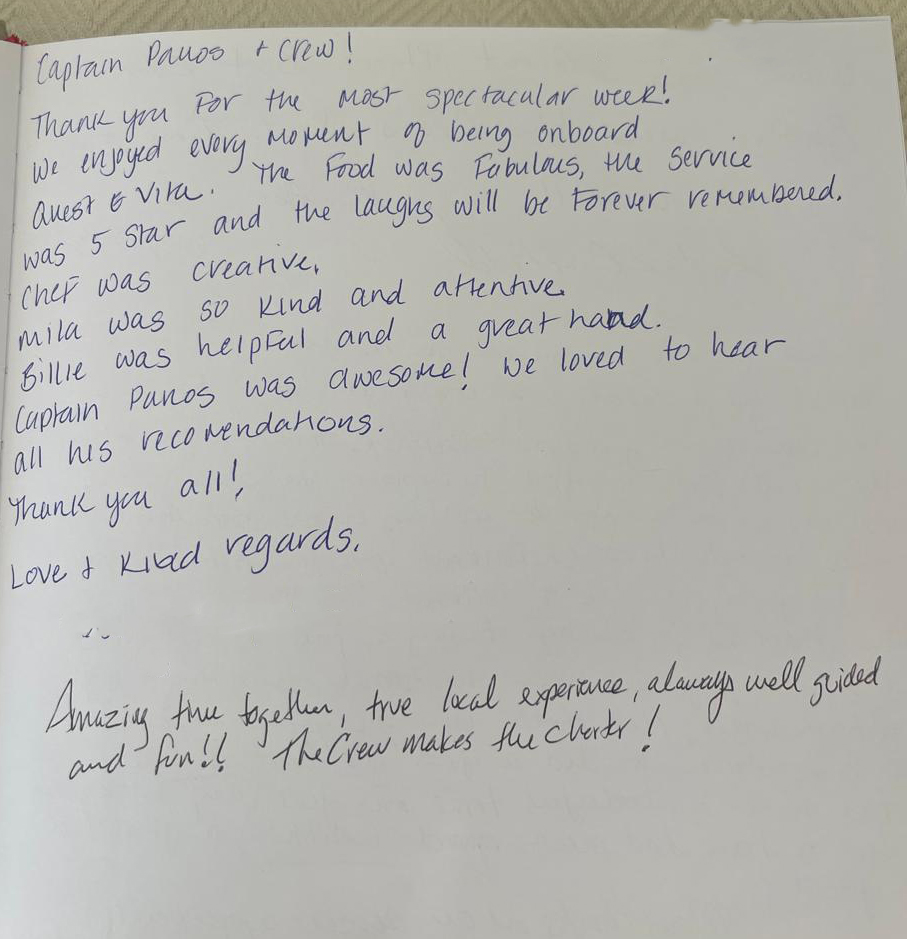 Captain Panos + Crew!
Thank you For the most spectacular week!
We enjoyed every moment of being onboard
Quest & Vita. The Food was Fabulous, the service
was 5 Star and the laughs will be Forever remembered.
Chef was creative.
Mila was so kind and attentive.
Billie was helpful and a great hand.
Captain Panos was awesome! We loved to hear
all his recomendations.
Thank you all!
Love + Kind regards.
Amazing time together, true local experience, always well guided
and fun!! The Crew makes the charter!